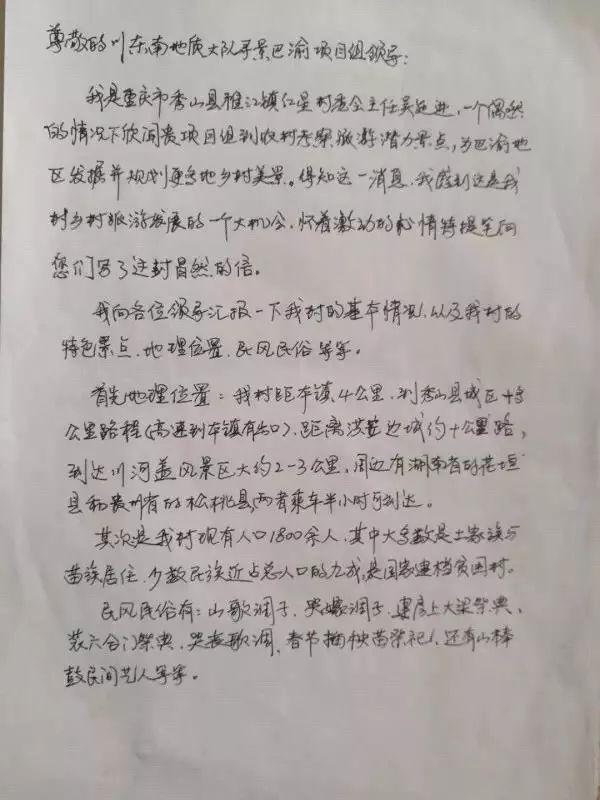 尊敬的川东南地质大队寻景巴渝项目组领导：
我是重庆市秀山县雅江镇红星村委会主任吴廷进，一个偶然
的情况下欣闻贵项目组到收村考察旅游潜力景点，为巴渝地
区发掘并规划更多地乡村美景。得知这一消息，我感到这是我
村乡村旅游发展的一个大机会，怀着激动的心情特提笔向
您们写了这封冒然的信。
我向各位领导汇报一下我村的基本情况，以及我村的
特色景点、地理位置、民风民俗等等。
首先地理位置：我村距本镇4公里，到秀山县城区十多
公里路程（高速到本镇有出口），距离洪安边城约十公里路，
到达川河盖风景区大约2-3公里，周边有湖南省的花垣
县和贵州省的松桃县，两者乘车半小时可到达。
其次是我村现有人口1800余人，其中大多数是土家族与
苗族居住，少数民族近占总人口的九成，是国家建档贫困村。
民风民俗有：山歌调子、哭嫁调子、建房上大梁祭典、
装六合门祭典、哭丧歌调、春节插秧苗祭祀、还有山棒
鼓民间艺人等等。